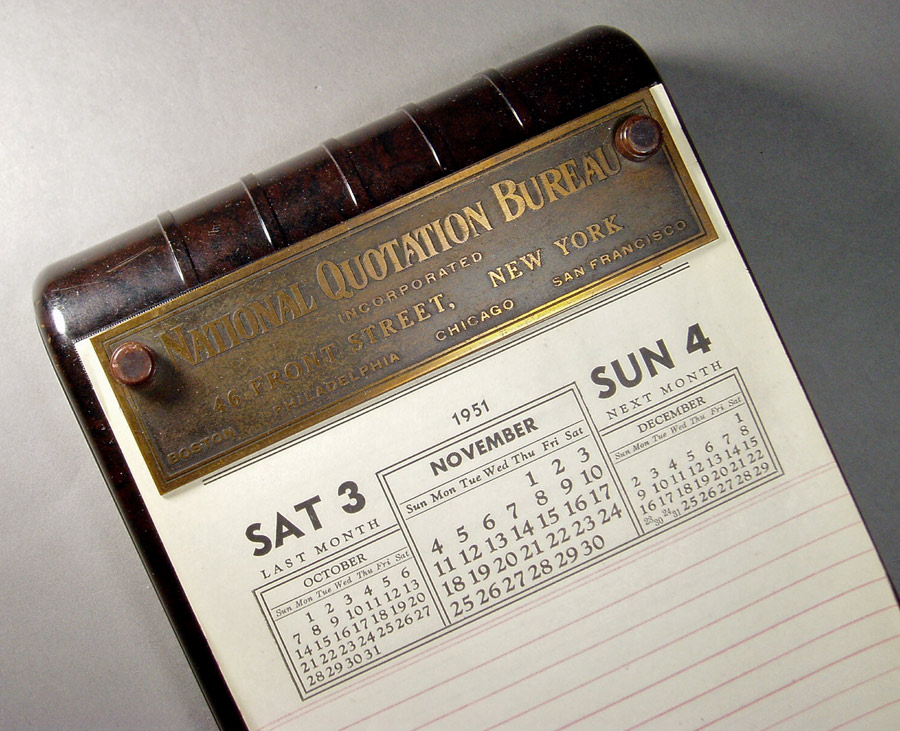 NATIONAL QUOTATION BUREAU
INCORPORATED
46 FRONT STREET, NEW YORK
BOSTON PHILADELPHIA CHICAGO SAN FRANCISCO
1951
SAT 3
LAST MONTH
OCTOBER
Sun Mon Tue Wed Thu Fri Sat
1 2 3 4 5 6
7 8 9 10 11 12 13
14 15 16 17 18 19 20
21 22 23 24 25 26 27
28 29 30 31
NOVEMBER
Sun Mon Tue Wed Thu Fri Sat
1 2 3
4 5 6 7 8 9 10
11 12 13 14 15 16 17
18 19 20 21 22 23 24
25 26 27 28 29 30
SUN 4
NEXT MONTH
DECEMBER
Sun Mon Tue Wed Thu Fri Sat
1
2 3 4 5 6 7 8
9 10 11 12 13 14 15
16 17 18 19 20 21 22
23/30 24/31 25 26 27 28 29